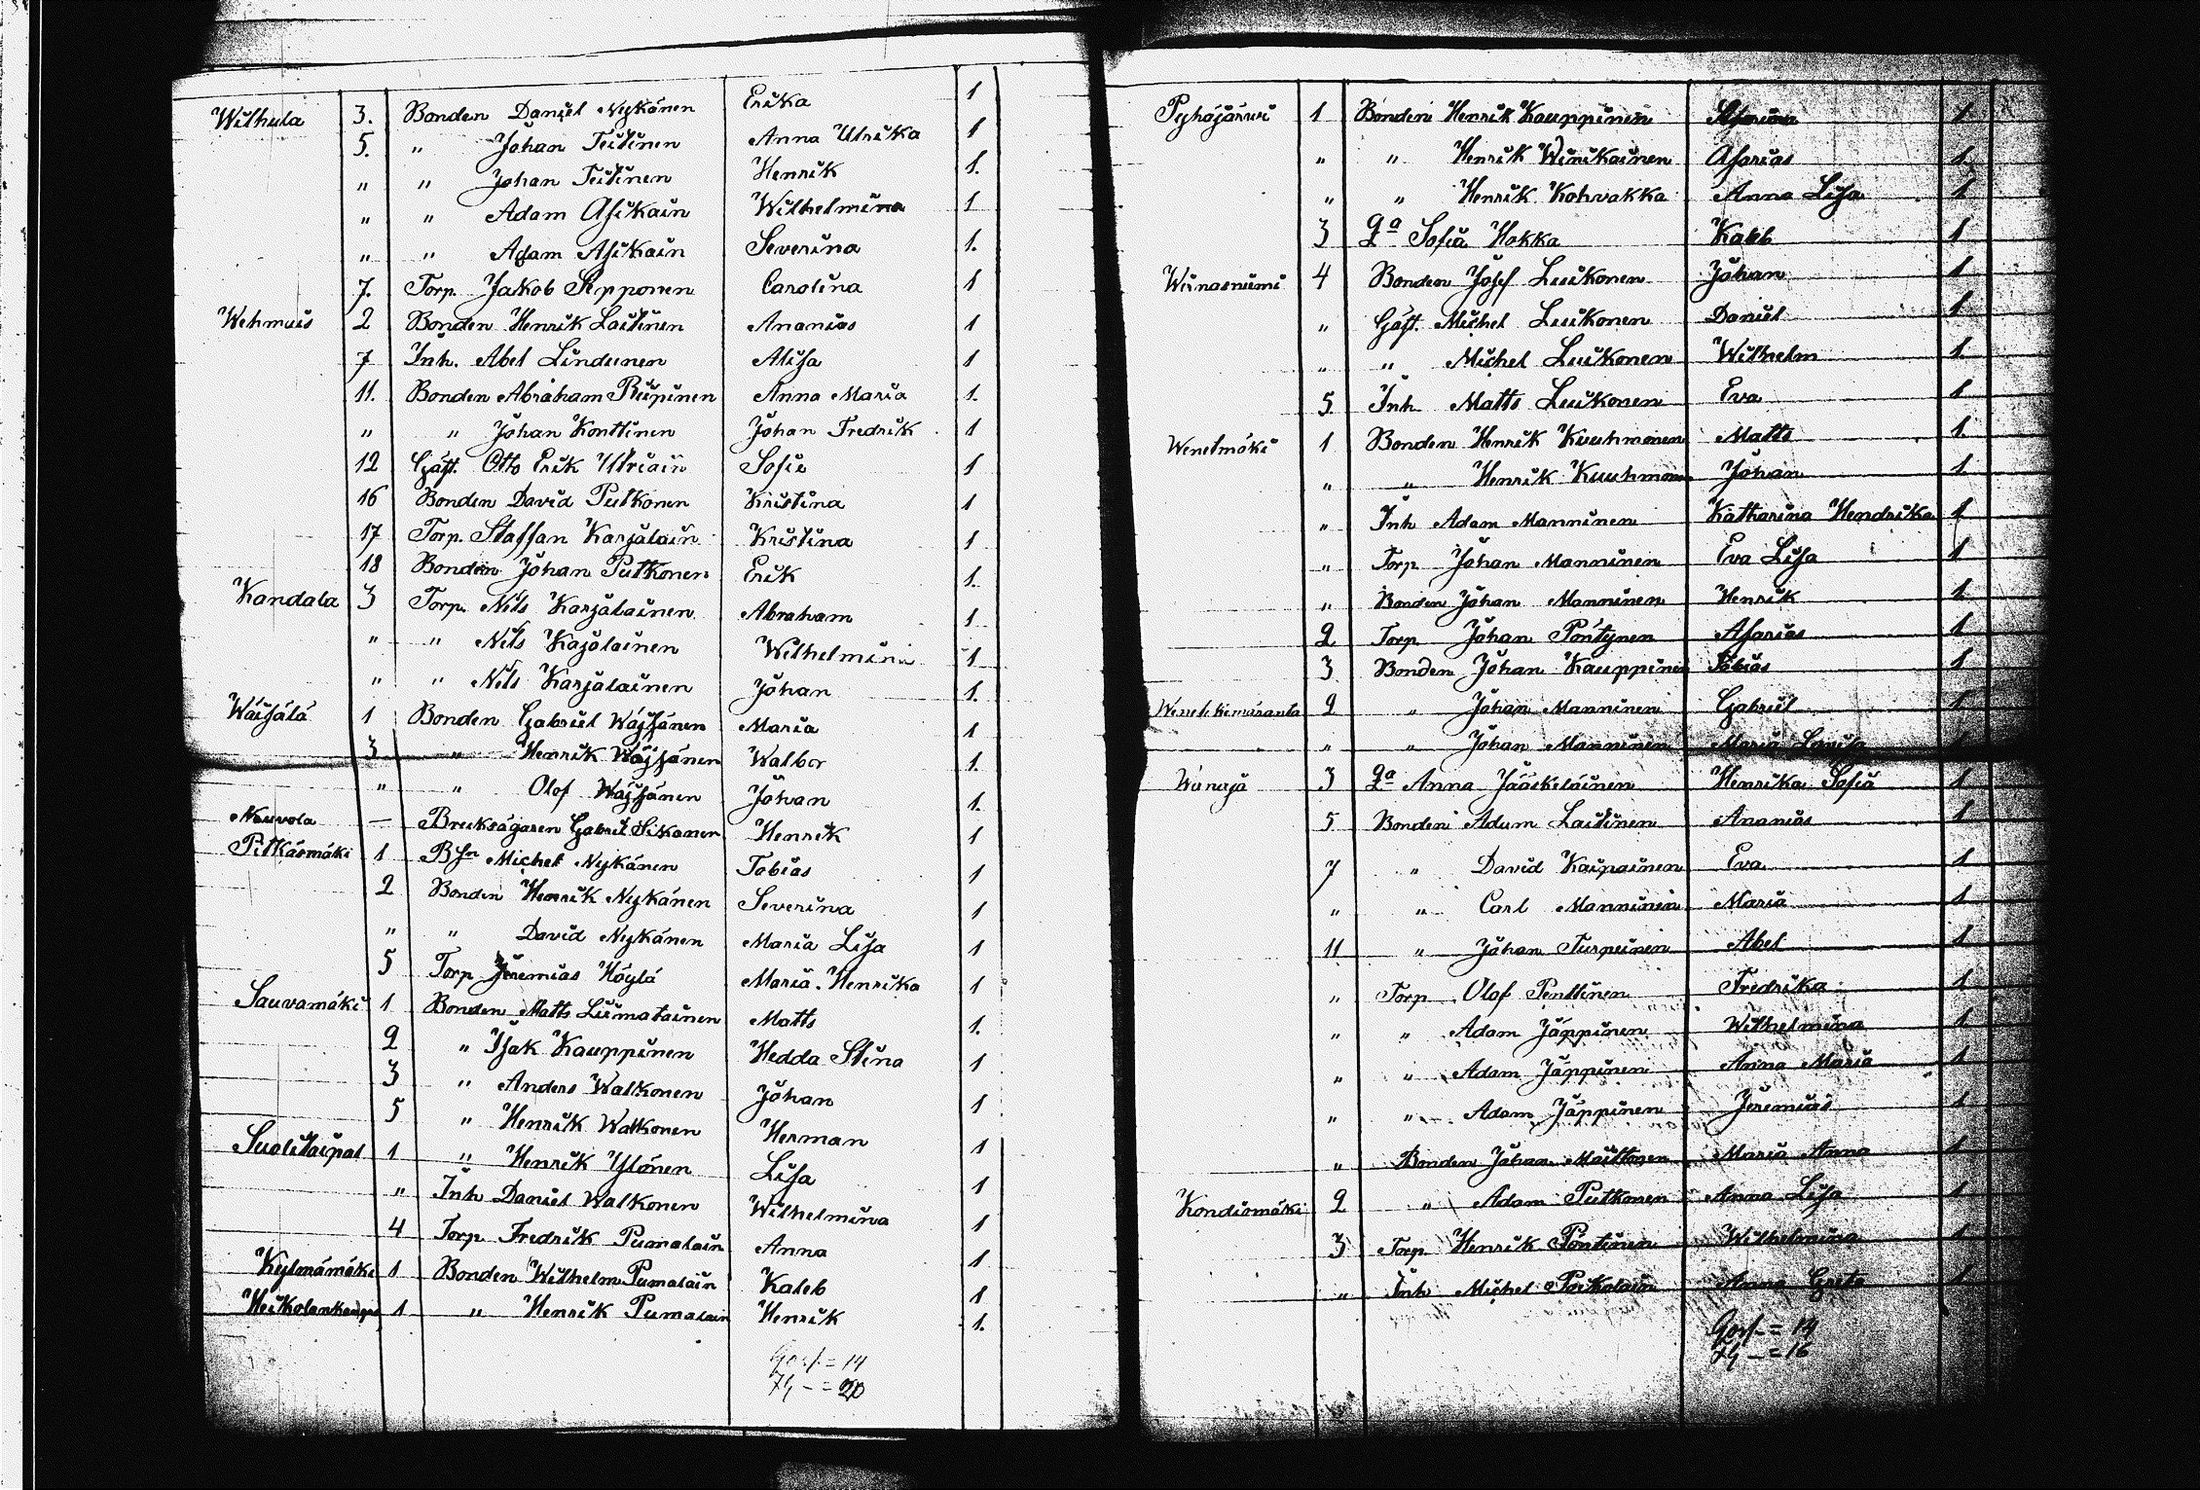 Wilhula 3. Bonden Daniel Nykänen Erika 1
5. " Johan Teitinen Anna Ulrika 1
" " Johan Teitinen Henrik 1.
" " Adam Asikain Wilhelmina 1
" " Adam Asikain Severina 1.
7. Torp. Jakob Sepponen Carolina 1
Wehmais 2 Bonden Henrik Laitinen Ananias 1
7 Inh. Abel Lindunen Alisa 1
11. Bonden Abraham Piipinen Anna Maria 1.
" " Johan Konttinen Johan Fredrik 1
12 Gäst. Otto Erik Utriain Sofia 1
16 Bonden David Putkonen Kristina 1
17 Torp. Staffan Karjalain Kristina 1
18 Bonden Johan Putkonen Erik 1.
Kandala 3 Torp. Nils Karjalainen Abraham 1
" " Nils Kajalainen Wilhelmina 1
" " Nils Karjalainen Johan 1.
Wäisälä 1 Bonden Gabriel Wäisänen Maria 1
3 " Henrik Wäisänen Walbor 1.
" " Olof Wäisänen Johan 1.
Nauvola — Bruksägaren Gabriel Sikanen Henrik 1
Pitkäsmäki 1 Bsn Michel Nykänen Tobias 1
2 Bonden Henrik Nykänen Severina 1
" " David Nykänen Maria Lisa 1
5 Torp Jeremias Höylä Maria Henrika 1
Sauvamäki 1 Bonden Matts Liimatainen Matts 1.
2 " Isak Kauppinen Hedda Stina 1
3 " Anders Walkonen Johan 1
5 " Henrik Walkonen Herman 1
Suolitaipal 1 " Henrik Ylönen Lisa 1
" Inh Daniel Walkonen Wilhelmina 1
4 Torp Fredrik Pumalain Anna 1
Kylmämäki 1 Bonden Wilhelm Pumalain Kaleb 1
1 " Henrik Pumalain Henrik 1.
= 14
— = 20
Pyhäjärwi 1 Bonden Henrik Kauppinen 1
" " Henrik Winikainen Asarias 1.
" " Henrik Kohvakka Anna Lisa 1
3 Qa Sofia Hokka Kaleb 1
Wiinasniemi 4 Bonden Josef Luukonen Johan 1
" Gäst. Michel Luukonen Daniel 1
" " Michel Luukonen Wilhelm 1.
5 Inh Matts Luukonen Eva 1
Wenetmäki 1 Bonden Henrik Kuuhmonen Matts 1.
" " Henrik Kuuhmonen Johan 1.
" Inh Adam Manninen Katharina Hendrika 1
" Torp Johan Manninen Eva Lisa 1
" Bonden Johan Manninen Henrik 1
2 Torp Johan Pöntynen Asarias 1
3 Bonden Johan Kauppinen Tobias 1
Wenetkimäranta 2 " Johan Manninen Gabriel 1
" " Johan Manninen Maria Lovisa 1
Wanaja 3 Qa Anna Jääskeläinen Henrika Sofia 1
5 Bonden Adam Laitinen Ananias 1
7 " David Kaipainen Eva 1
" " Carl Manninen Maria 1
11 " Johan Turpeinen Abel 1
" Torp Olof Penttinen Fredrika 1
" " Adam Jäppinen Wilhelmina 1
" " Adam Jäppinen Anna Maria 1
" " Adam Jäppinen Jeremias 1
" Bonden Johan Maittonen Maria Anna 1
Kondiomäki 2 " Adam Putkonen Anna Lisa 1
3 Torp Henrik Pöntinen Wilhelmina 1
" Inh Michel Anna Greta 1
= 14
— = 16